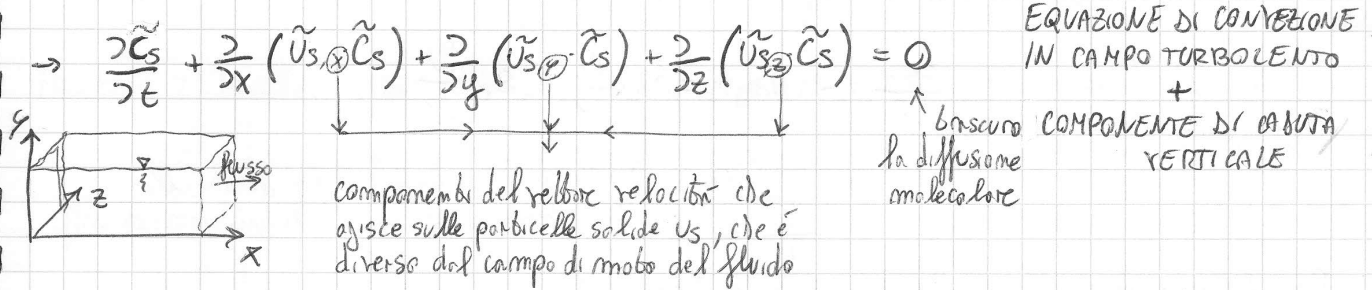 → ∂C̃s/∂t + ∂/∂x (Ũs,x C̃s) + ∂/∂y (Ũs,y · C̃s) + ∂/∂z (Ũs,z C̃s) = 0
EQUAZIONE DI CONVEZIONE
IN CAMPO TURBOLENTO
+
COMPONENTE DI CADUTA
VERTICALE
trascuro
la diffusione
molecolare
y
flusso
z
x
componenti del vettore velocità che
agisce sulle particelle solide us, che è
diverso dal campo di moto del fluido